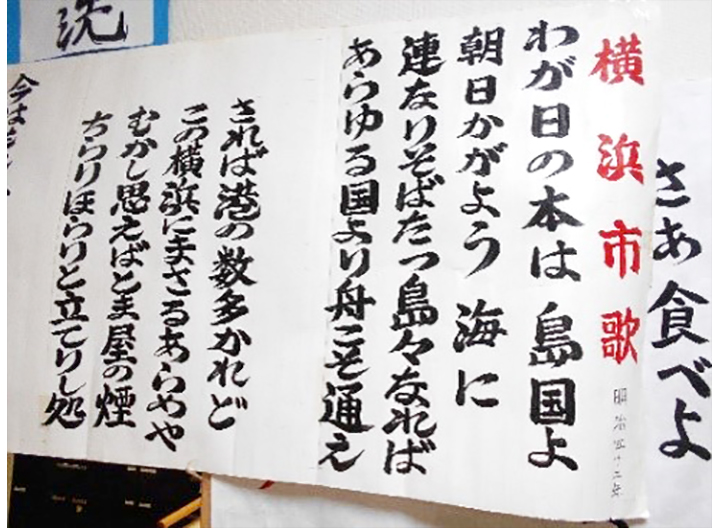 さあ食べよ
横浜市歌
明治四十二年
わが日の本は 島国よ
朝日かがよう 海に
連なりそばたつ島々なれば
あらゆる国より舟こそ通え
されば港の数多かれど
この横浜にまさるあらめや
むかし思えばとま屋の煙
ちらりほらりと立てりし処
今は
洗